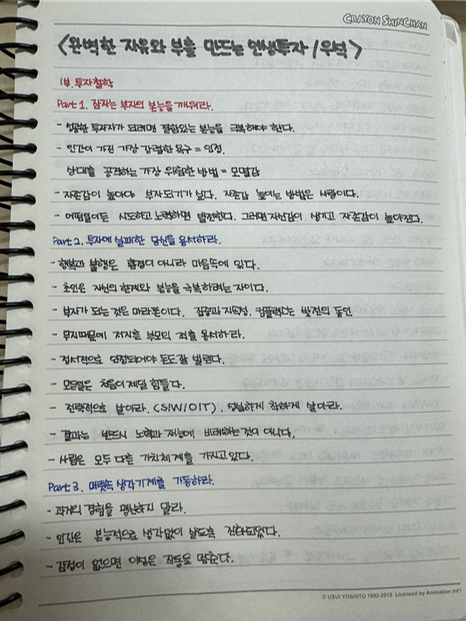 CRAYON SHINCHAN
<완벽한 자유와 부를 만드는 인생투자 / 우석>
1부. 투자철학
Part 1. 잠자는 부자의 본능을 깨워라.
- 성공한 투자자가 되려면 결함있는 본능을 극복해야 한다.
- 인간이 가진 가장 강렬한 욕구 = 인정.
상대를 공격하는 가장 위험한 방법 = 모멸감
- 자존감이 높아야 부자되기가 쉽다. 자존감 높이는 방법은 사랑이다.
- 어떤일이든 시도하고 노력하면 발전한다. 그러면 자신감이 생기고 자존감이 높아진다.
Part 2. 투자에 실패한 당신을 용서하라.
- 행복과 불행은 환경이 아니라 마음속에 있다.
- 초인은 자신의 한계와 본능을 극복하려는 자이다.
- 부자가 되는 것은 마라톤이다. 집중과 지속성, 컴플렉스는 발전의 동인
- 무지때문에 저지른 부모의 죄를 용서하라.
- 정서적으로 안정되어야 돈도 잘 번린다.
- 모든일은 처음이 제일 힘들다.
- 전략적으로 살아라. (SIW/OIT). 성실하게 착하게 살아라.
- 결과는 반드시 노력과 재능에 비례하는 것이 아니다.
- 사람은 모두 다른 가치체계를 가지고 있다.
Part 3. 머릿속 생각기계를 가동하라.
- 과거의 경험을 맹신하지 말라.
- 인간은 본능적으로 생각없이 살도록 진화되었다.
- 감정이 없으면 이성은 작동을 멈춘다.
© USUI YOSHITO 1992-2019 Licensed by Animation Int'l